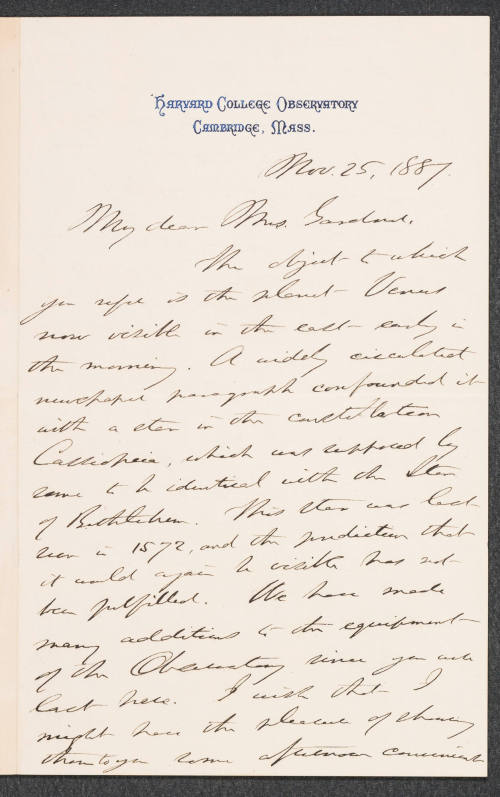 HARVARD COLLEGE OBSERVATORY
CAMBRIDGE, MASS.
Nov. 25, 1887.
My dear Mrs. Gardner,
The object to which
you refer is the planet Venus
now visible in the east early in
the morning. A widely circulated
newspaper paragraph confounded it
with a star in the constellation
Cassiopeia, which was supposed by
some to be identical with the Star
of Bethlehem. This star was last
seen in 1572, and the prediction that
it would again be visible has not
been fulfilled. We have made
many additions to the equipment
of the Observatory since you were
last here. I wish that I
might have the pleasure of showing
them to you some afternoon convenient